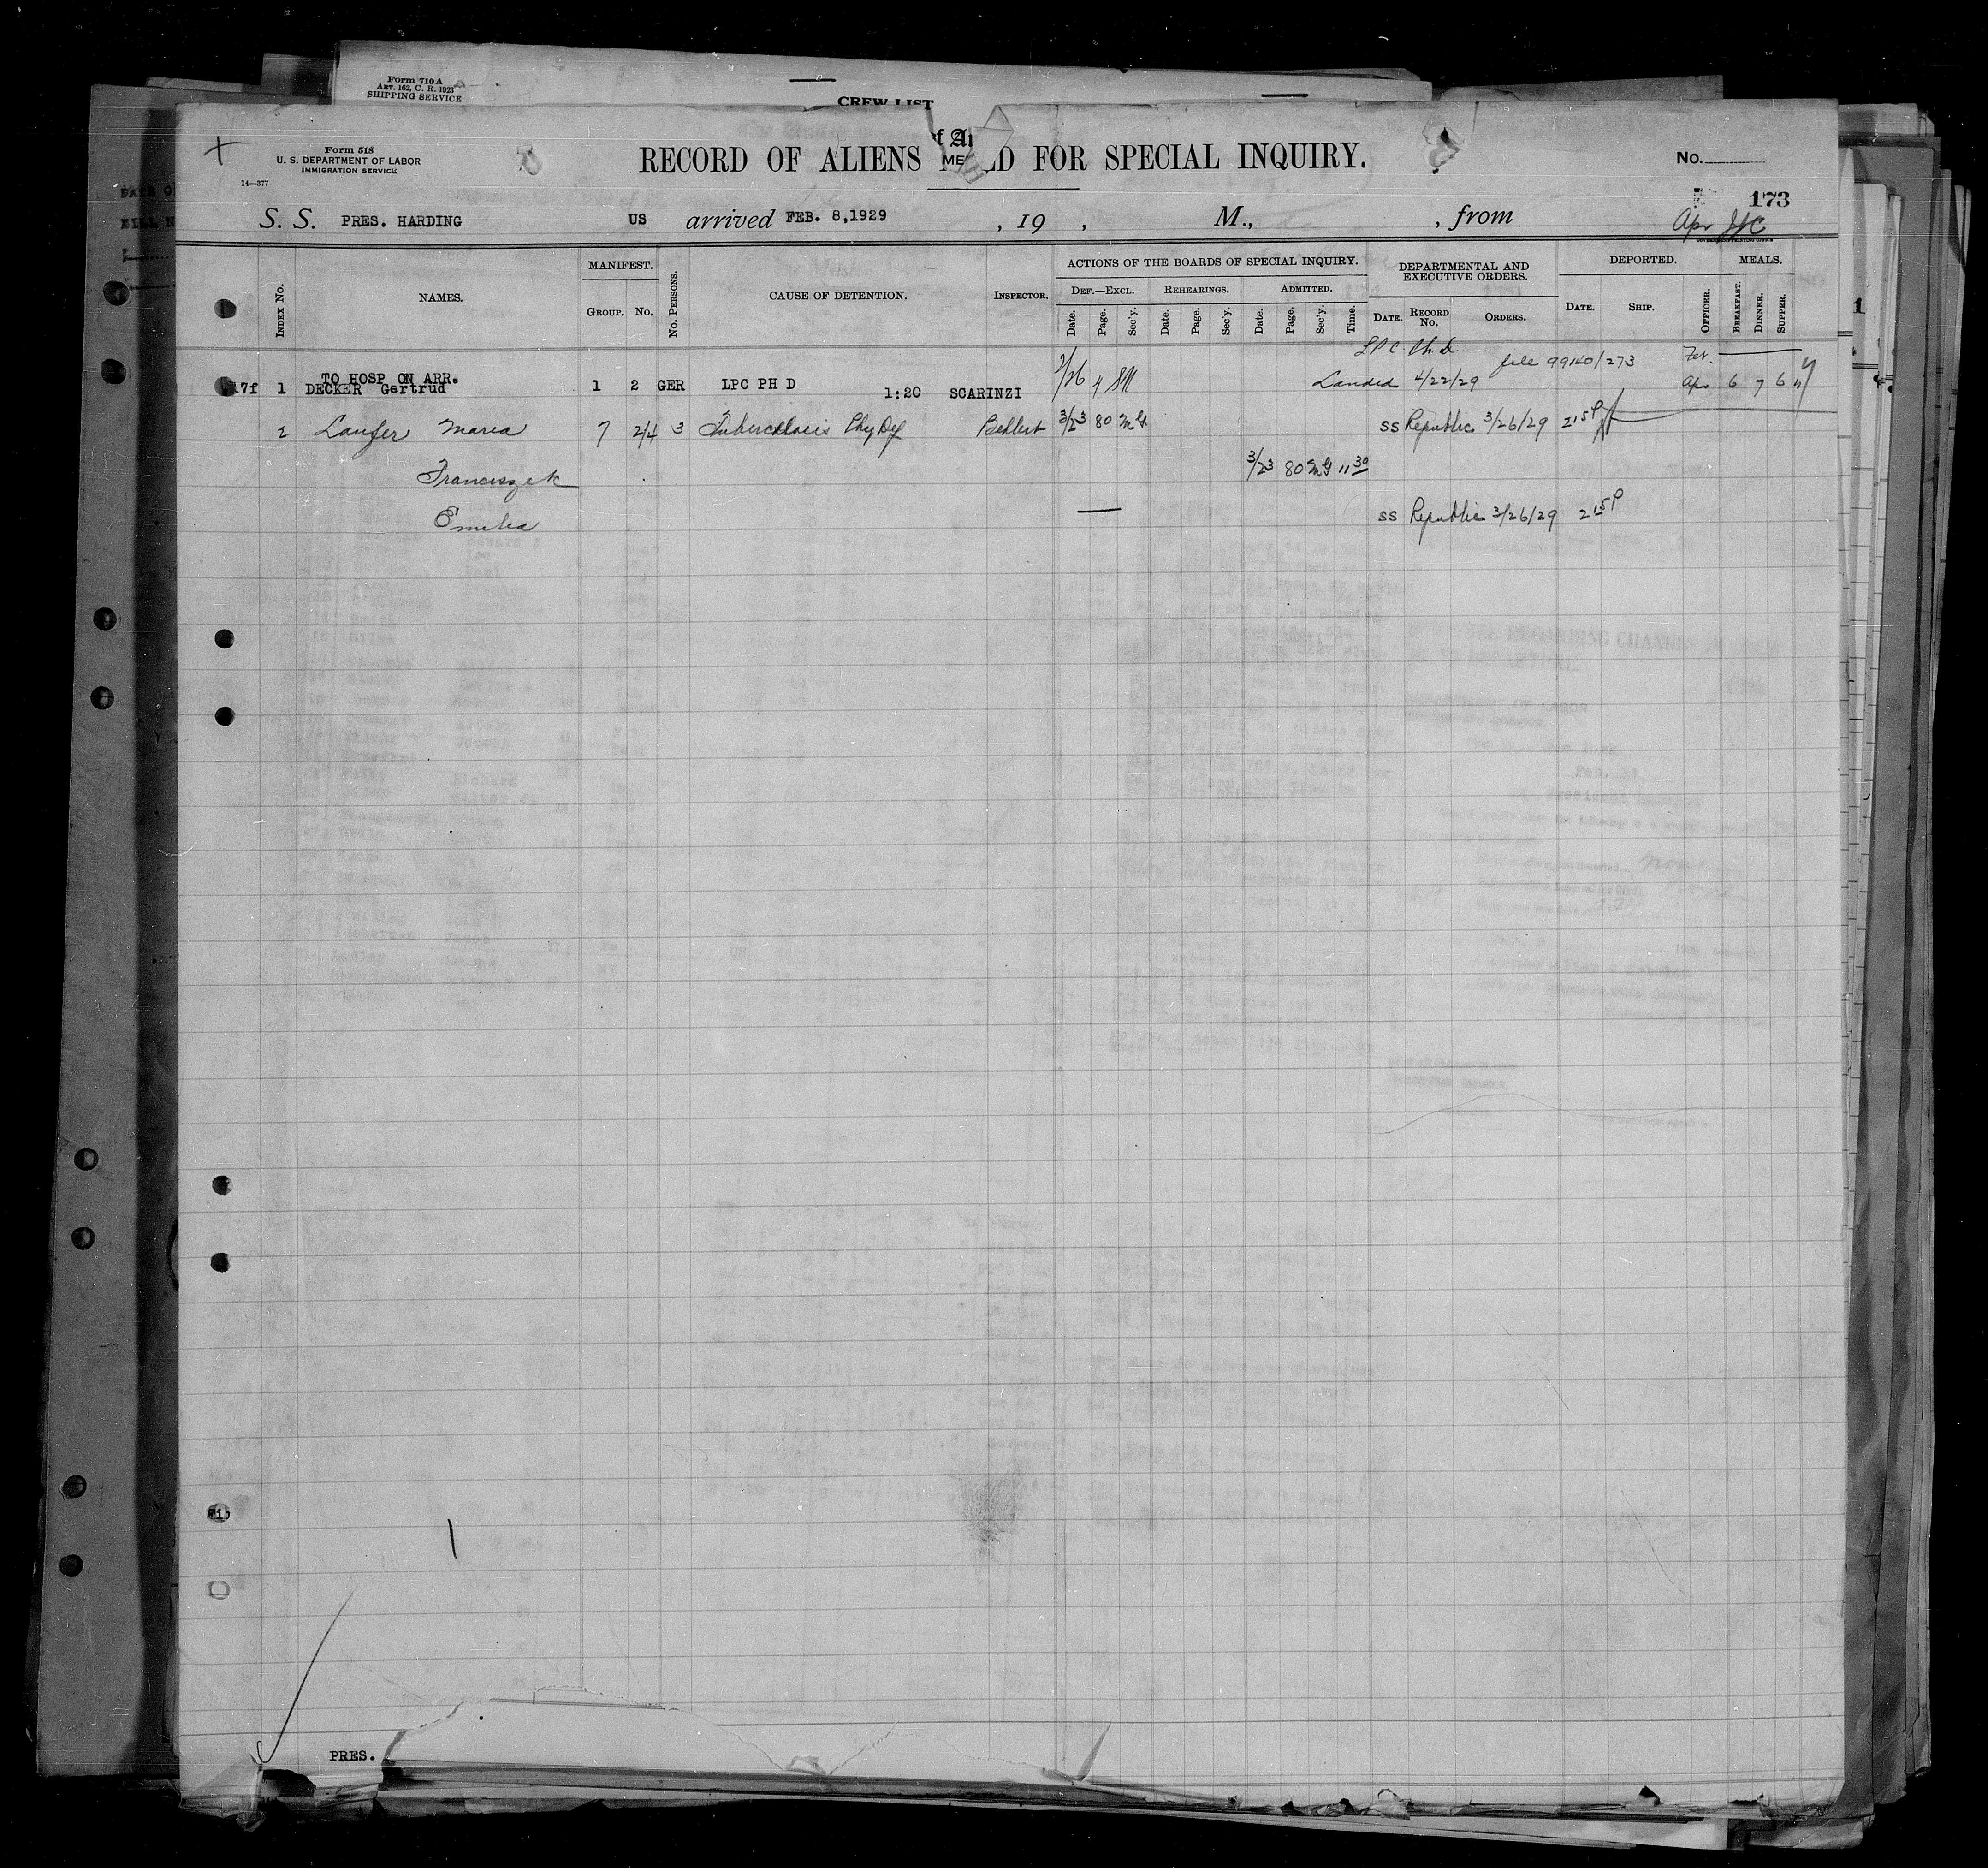 Form 710 A
ART. 162, C. R. 1923
SHIPPING SERVICE
CREW LIST
Form 518
U. S. DEPARTMENT OF LABOR
IMMIGRATION SERVICE
14—377
RECORD OF ALIENS D FOR SPECIAL INQUIRY.
No.
173
S. S. PRES. HARDING US arrived FEB. 8,1929 , 19 , M., , from
ACTIONS OF THE BOARDS OF SPECIAL INQUIRY. DEPARTMENTAL AND EXECUTIVE ORDERS. DEPORTED. MEALS.
INDEX NO. NAMES. MANIFEST. GROUP. NO. NO. PERSONS. CAUSE OF DETENTION. INSPECTOR. DEF.—EXCL. REHEARINGS. ADMITTED.
Date. Page. Sec'y. Date. Page. Sec'y. Date. Page. Sec'y. Time. DATE. RECORD NO. ORDERS. DATE. SHIP. OFFICER. BREAKFAST. DINNER. SUPPER.
LPC Ph. D. file 99140/273 Feb.
TO HOSP ON ARR.
17f 1 DECKER Gertrud 1 2 GER LPC PH D 1:20 SCARINZI 2/26 4 SM Landed 4/22/29 Apr 6 7 6
2 Laufer Maria 7 2/4 3 Tuberculosis Phy Def 3/23 80 MG SS Republic 3/26/29 2 15 P
Franciszek 3/23 80 MG 11 30
Emilia — SS Republic 3/26/29 2 15 P
PRES.